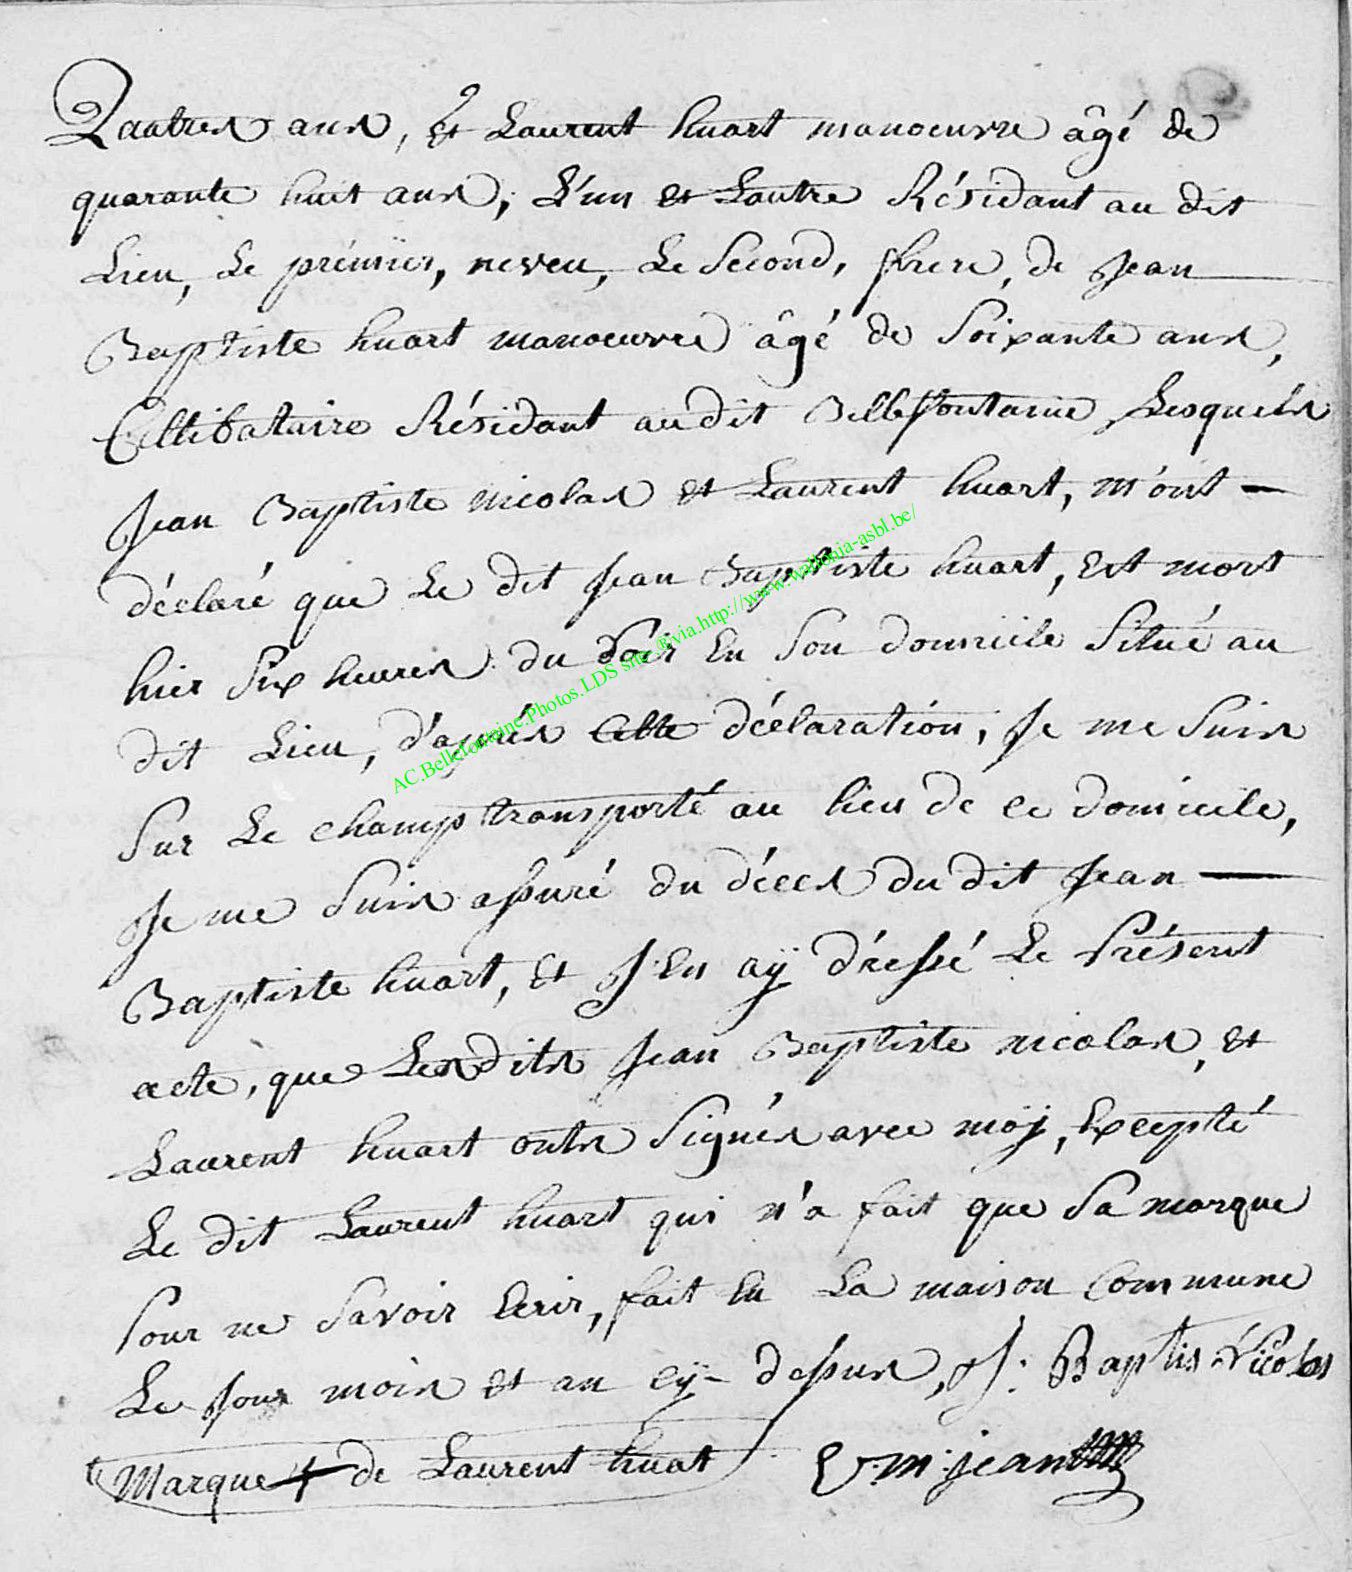 Quatres ans, et Laurent huart manoeuvre âgé de
quarante huit ans, L'un et Lautre Résidant au dit
Lieu, Le prémier, neveu, Le Second, frere, de Jean
Baptiste huart manoeuvre âgé de Soixante ans,
Cellibataire Résidant audit Bellefontaine Lesquels
Jean Baptiste nicolas et Laurent huart, m'ont
déclaré que Le dit Jean Baptiste huart, est mort
hier Six heures du Soir En Son domicile Situé au
dit Lieu, d'après Cette déclaration, Je me Suis
Sur Le champ transporté au lieu de ce domicile,
Je me Suis assuré du décès du dit Jean
Baptiste huart, et J'En aÿ dréssé Le Présent
acte, que Lesdits Jean Baptiste nicolas, et
Laurent huart onts Signés avec moÿ, Excepté
Le dit Laurent huart qui n'a fait que Sa marque
Pour ne Savoir Ecrir, fait En La maison Commune
Le Jour mois et an cÿ-dessus, J: Baptis Nicolas
Marque + de Laurent huat
AC.Bellefontaine.Photos.LDS site ®via.http://www.wallonia-asbl.be/